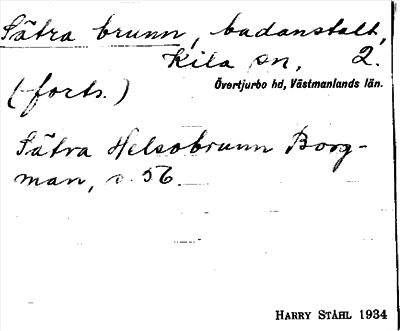 Sätra brunn, badanstalt,
Kila sn, 2.
Övertjurbo hd, Västmanlands län.
(forts.)
Sätra Helsobrunn Borg-
man, s. 56.
HARRY STÅHL 1934